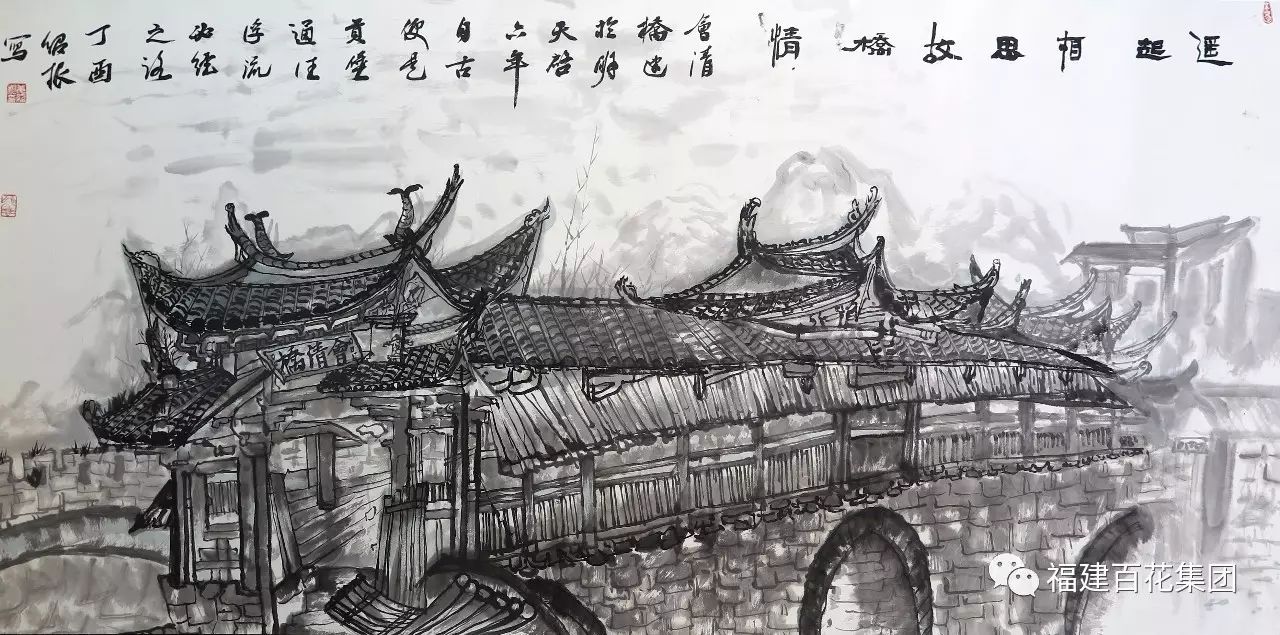 遥起相思故橋情
會清
橋建
於明
天啓
六年
自古
便是
貢堡
通往
浮流
必經
之路
丁酉
紹振
寫
會清橋
福建百花集团